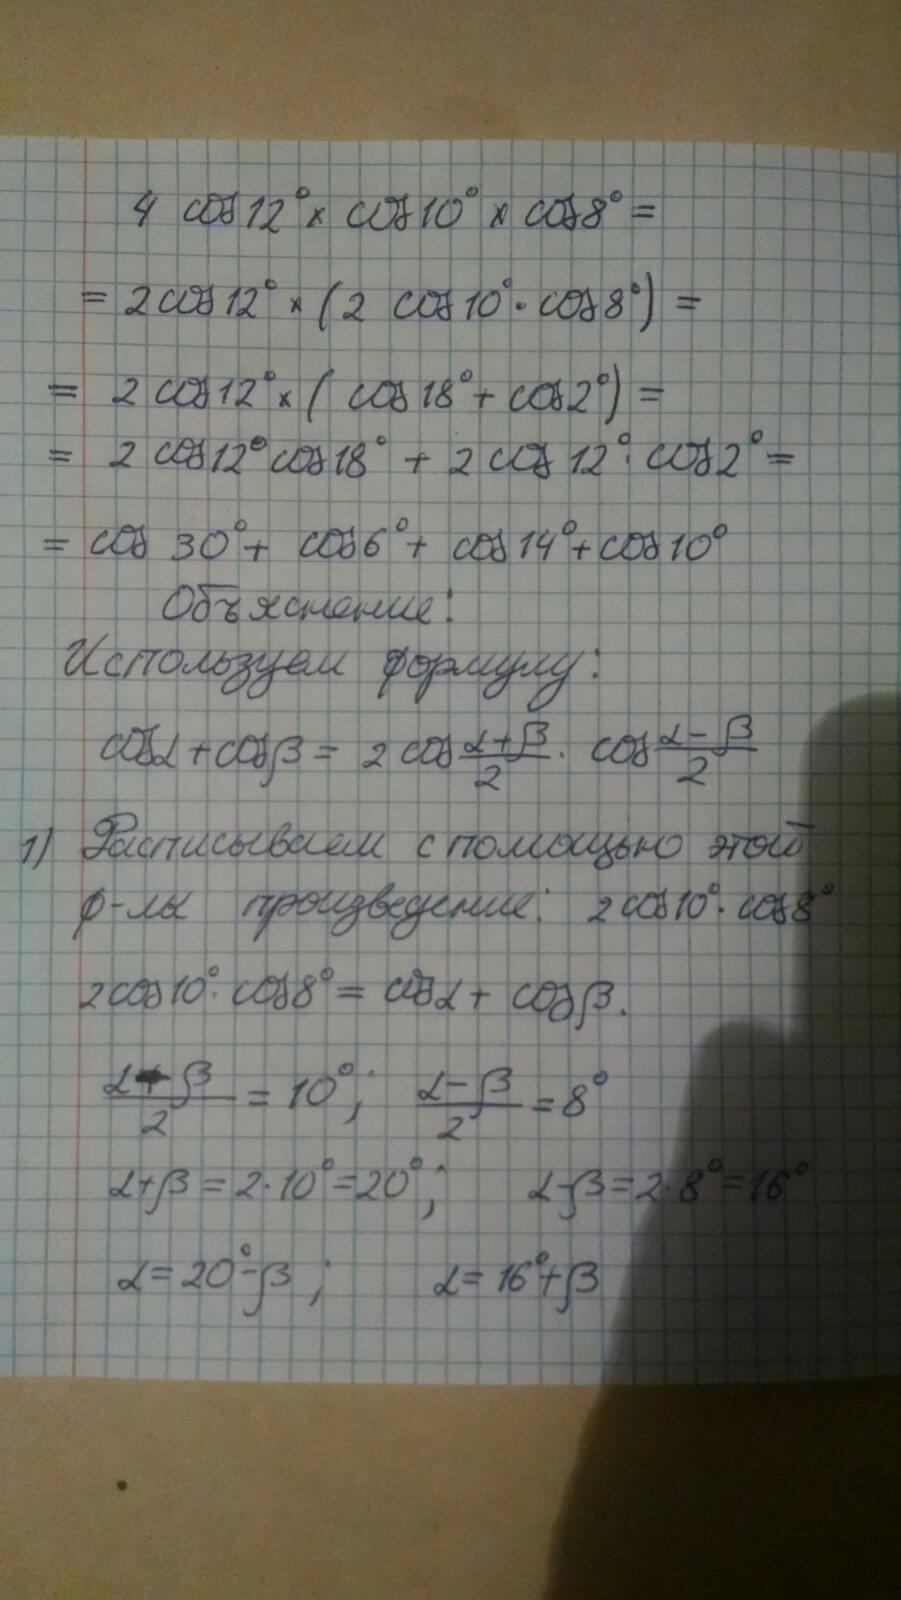 4 cos12° × cos10° × cos8° =
= 2cos12° × (2 cos10° · cos8°) =
= 2 cos12° × ( cos18° + cos2°) =
= 2 cos12° cos18° + 2 cos12° · cos2° =
= cos 30° + cos6° + cos14° + cos10°
Объяснение:
Используем формулу:
cosα + cosβ = 2 cos (α+β)/2 · cos (α-β)/2
1) Расписываем с помощью этой
ф-лы произведение: 2cos10° · cos8°
2cos10° · cos8° = cosα + cosβ.
(α+β)/2 = 10°; (α-β)/2 = 8°
α+β = 2·10° = 20°; α-β = 2·8° = 16°
α = 20°-β ; α = 16°+β